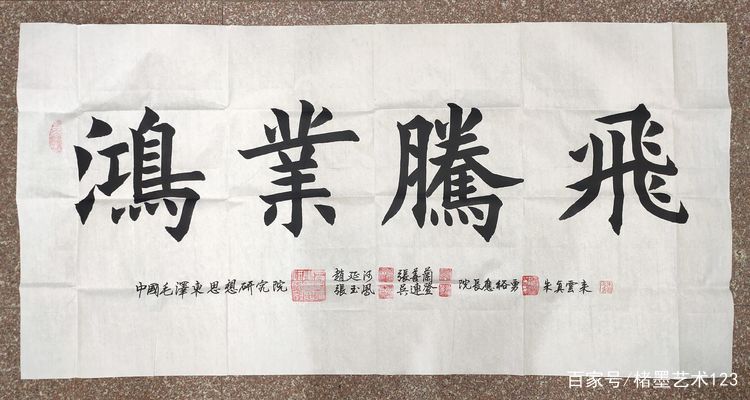 鴻業騰飛
中國毛澤東思想研究院
趙延河
張玉凤
張善蘭
吴連登
院長應裕勇
朱真雲来
百家号/楮墨艺术123